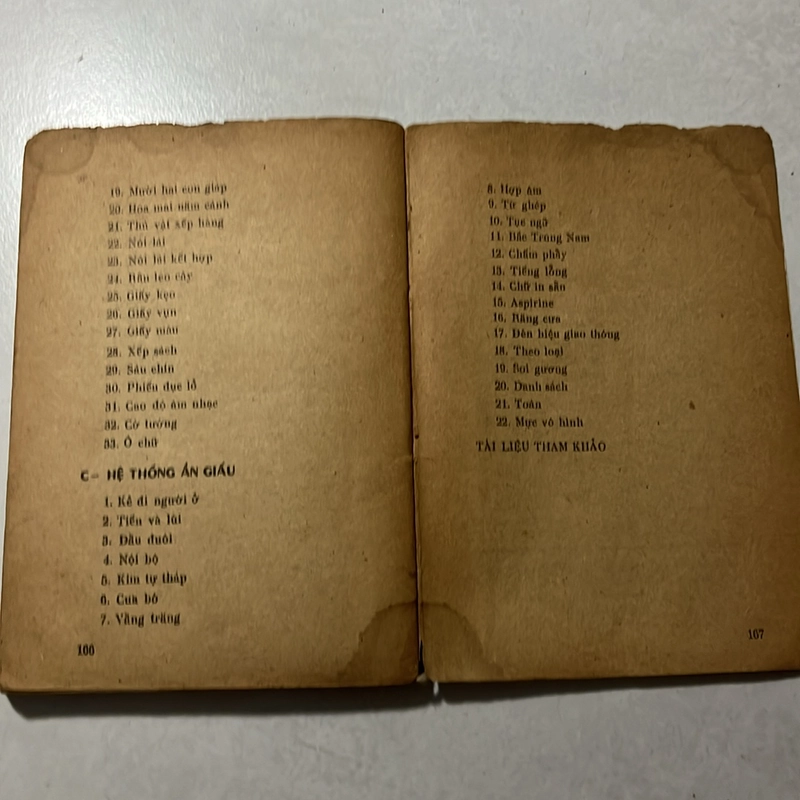 19. Mười hai con giáp
20. Hoa mai năm cánh
21. Thú vật xếp hàng
22. Nói lái
23. Nói lái kết hợp
24. Rắn leo cây
25. Giấy kẹo
26. Giấy vụn
27. Giấy màu
28. Xếp sách
29. Sáu chín
30. Phiếu đục lỗ
31. Cao độ âm nhạc
32. Cờ tướng
33. Ô chữ
C — HỆ THỐNG ẨN GIẤU
1. Kẻ đi người ở
2. Tiến và lùi
3. Đầu đuôi
4. Nội bộ
5. Kim tự tháp
6. Cưa bỏ
7. Vầng trăng
166
8. Hợp âm
9. Từ ghép
10. Tục ngữ
11. Bắc Trung Nam
12. Chấm phẩy
13. Tiếng lỏng
14. Chữ in sẵn
15. Aspirine
16. Răng cưa
17. Đèn hiệu giao thông
18. Theo loại
19. Soi gương
20. Danh sách
21. Toán
22. Mực vô hình
TÀI LIỆU THAM KHẢO
167